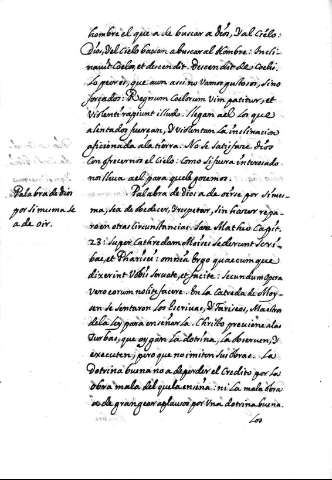 hombre el que a de buscar a dios, Y al Cielo:
Dios, Y el Cielo bascan a buscar al Hombre: Incli-
nauit Coelos, et descendit. descendit de Coelis.
Lo peor es, que aun assi no Vamos gustosos, sino
forçados: Regnum Coelorum vim patitur, et
Violenti rapiunt illud. llegan a el los que
alentados fuerçan, Y violentan la inclinacion
aficionada a la tierra. No se satisface dios
Con ofrecernos el Cielo: Como si fuera interesado
nos lleua a el para que le gozemos.
Palabra de Dios
por si misma se
a de oir.
Palabra de dios a de oirse por si mes-
ma, sea de obedecer, Y respetar, sin hazer repa-
ro en otras Circunstancias. Sare Matheo Capit.
23: super Cathedram Moises sederunt Scri-
bae, et Pharisei: omnia ergo quaecumque
dixerint Vobis seruate, et facite: secundum opera
vero eorum nolite facere. En la Catreda de Moy-
sen se sentaron los Escriuas, Y Fariseos, Maestros
de la ley para enseñarla. Christo preuiene a las
turbas, que oygan la dotrina, la obseruen, Y
executen; pero que no imiten sus obras. La
dotrina buena no a de perder el Credito por la
obra mala del que la enseña: ni la mala obra
a de grangear aplausos por vna dotrina buena.
Los